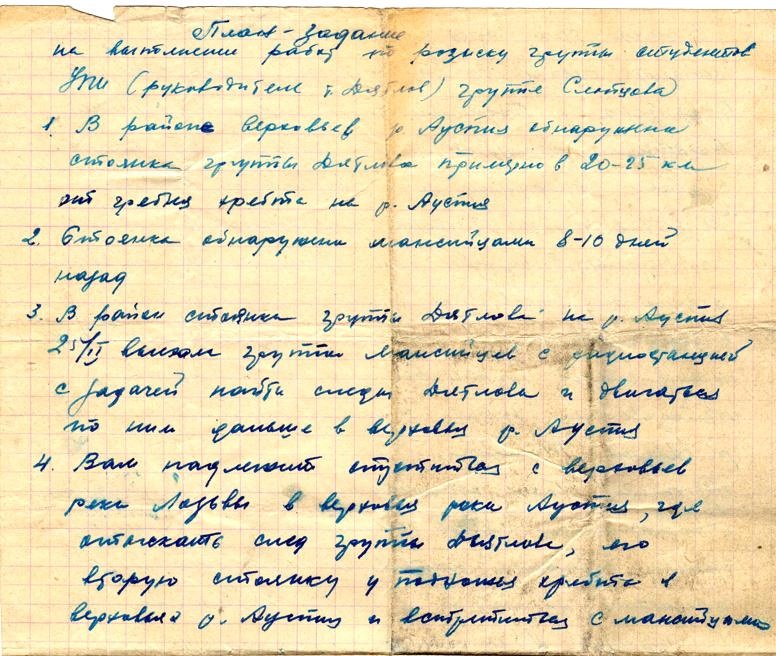 План-задание
на выполнение работ по розыску группы студентов
УПИ (руководитель т. Дятлов) группе Слобцова
1. В районе верховьев р. Ауспия обнаружена
стоянка группы Дятлова примерно в 20-25 км
от гребня хребта на р. Ауспия
2. Стоянка обнаружена мансийцами 8-10 дней
назад
3. В район стоянки группы Дятлова на р. Ауспия
25/II выехала группа мансийцев с радиостанцией
с задачей найти следы Дятлова и двигаться
по ним дальше в верховья р. Ауспия
4. Вам надлежит спуститься с верховьев
реки Лозьвы в верховья реки Ауспия, где
отыскать след группы Дятлова, его
вторую стоянку у подножия хребта в
верховья р. Ауспия и встретиться с мансийцами